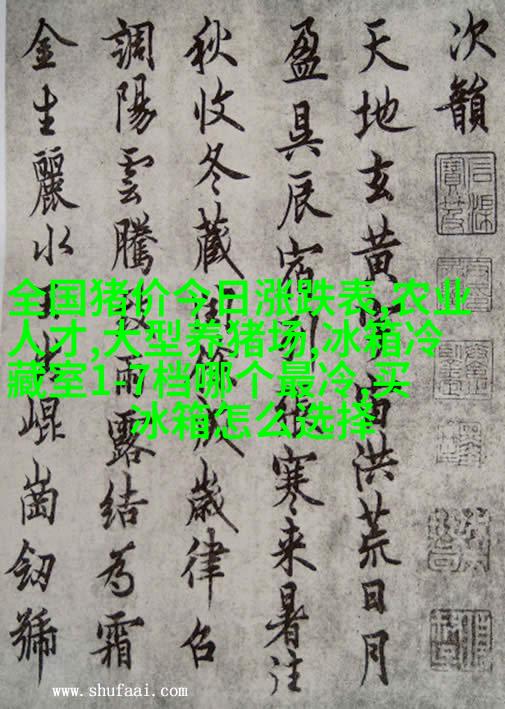 次韻
天地玄黄宇宙洪荒日月
盈昃辰宿列張寒来暑往
秋收冬藏閏餘成歲律召
調陽雲騰致雨露結為霜
金生麗水玉出崐崗劒號
全国猪价今日涨跌表,农业
人才,大型养猪场,冰箱冷
藏室1-7档哪个最冷,买
冰箱怎么选择
www.shufaai.com